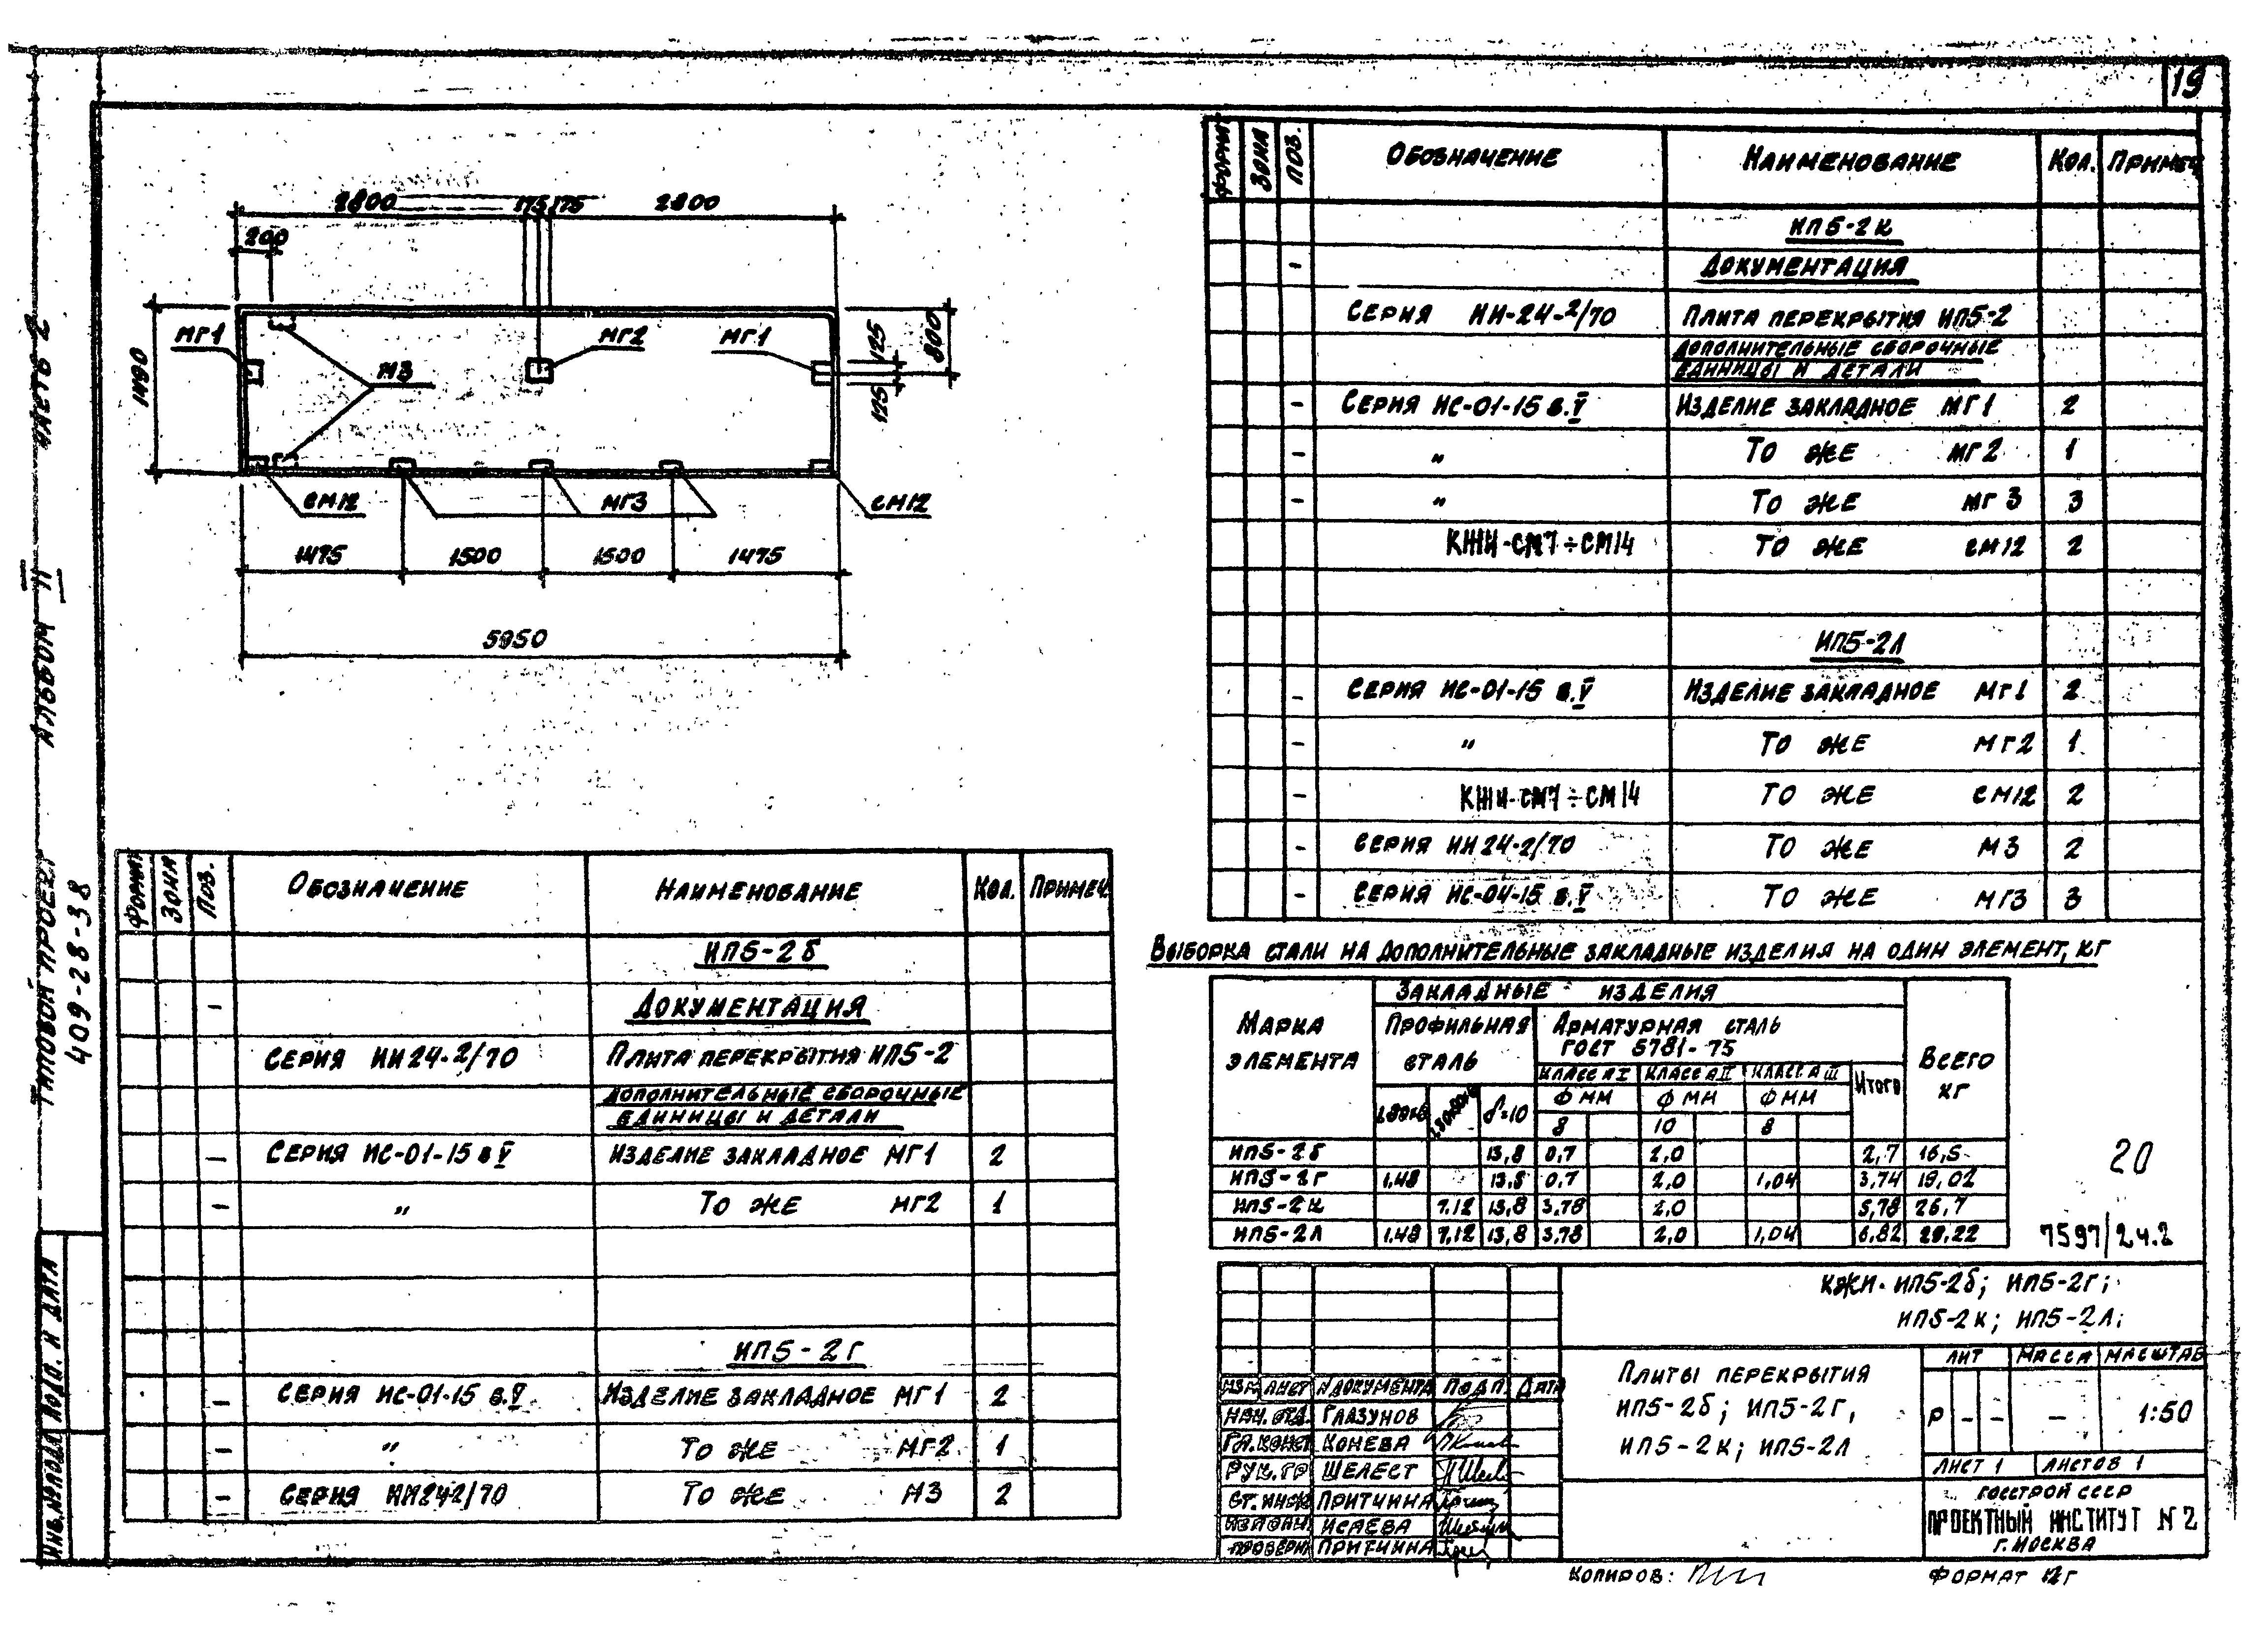 19
2800 175 175 2800
200
МГ1 МГ2 МГ1
М3
1490
125
125
800
СМ12 МГ3 СМ12
1475 1500 1500 1475
5950
Типовой проект
409-28-38
Альбом II
Часть 2
Инв.№подл Подп. и дата
Формат Зона Поз. Обозначение Наименование Кол. Примеч.
ИП5-2б
- Документация
Серия ИИ24-2/70 Плита перекрытия ИП5-2
Дополнительные сборочные
единицы и детали
- Серия ИС-01-15 в V Изделие закладное МГ1 2
- " То же МГ2 1
ИП5-2г
- Серия ИС-01-15 в.V Изделие закладное МГ1 2
- " То же МГ2 1
- Серия ИИ24-2/70 То же М3 2
Формат Зона Поз. Обозначение Наименование Кол. Примеч
ИП5-2к
- Документация
Серия ИИ-24-2/70 Плита перекрытия ИП5-2
Дополнительные сборочные
единицы и детали
- Серия ИС-01-15 в.V Изделие закладное МГ1 2
- " То же МГ2 1
- " То же МГ3 3
КЖИ-СМ7÷СМ14 То же СМ12 2
ИП5-2л
- Серия ИС-01-15 в.V Изделие закладное МГ1 2
- " То же МГ2 1
- КЖИ-СМ7÷СМ14 То же СМ12 2
- Серия ИИ24-2/70 То же М3 2
- Серия ИС-04-15 в.V То же МГ3 3
Выборка стали на дополнительные закладные изделия на один элемент, кг
Марка элемента Закладные изделия Всего кг
Профильная сталь Арматурная сталь
ГОСТ 5781-75
Класс АI Класс АII Класс АIII Итого
Ф мм Ф мм Ф мм
δ=10 8 10 8
ИП5-2б 13,8 0,7 2,0 2,7 16,5
ИП5-2г 1,48 13,8 0,7 2,0 1,04 3,74 19,02
ИП5-2к 7,12 13,8 3,78 2,0 5,78 26,7
ИП5-2л 1,48 7,12 13,8 3,78 2,0 1,04 6,82 29,22
20
7597/2 ч.2
КЖИ-ИП5-2б; ИП5-2г;
ИП5-2к; ИП5-2л;
Плиты перекрытия
ИП5-2б; ИП5-2г,
ИП5-2к; ИП5-2л
Лит Масса Масштаб
Р - - - 1:50
Лист 1 Листов 1
Госстрой СССР
Проектный институт №2
г. Москва
Изм Лист №документа Подп. Дата
Нач. отд. Глазунов
Гл.конст Конева
Рук.гр Шелест
Ст.инж Притчина
Исполн. Исаева
Проверил Притчина
Копиров: Формат 12г